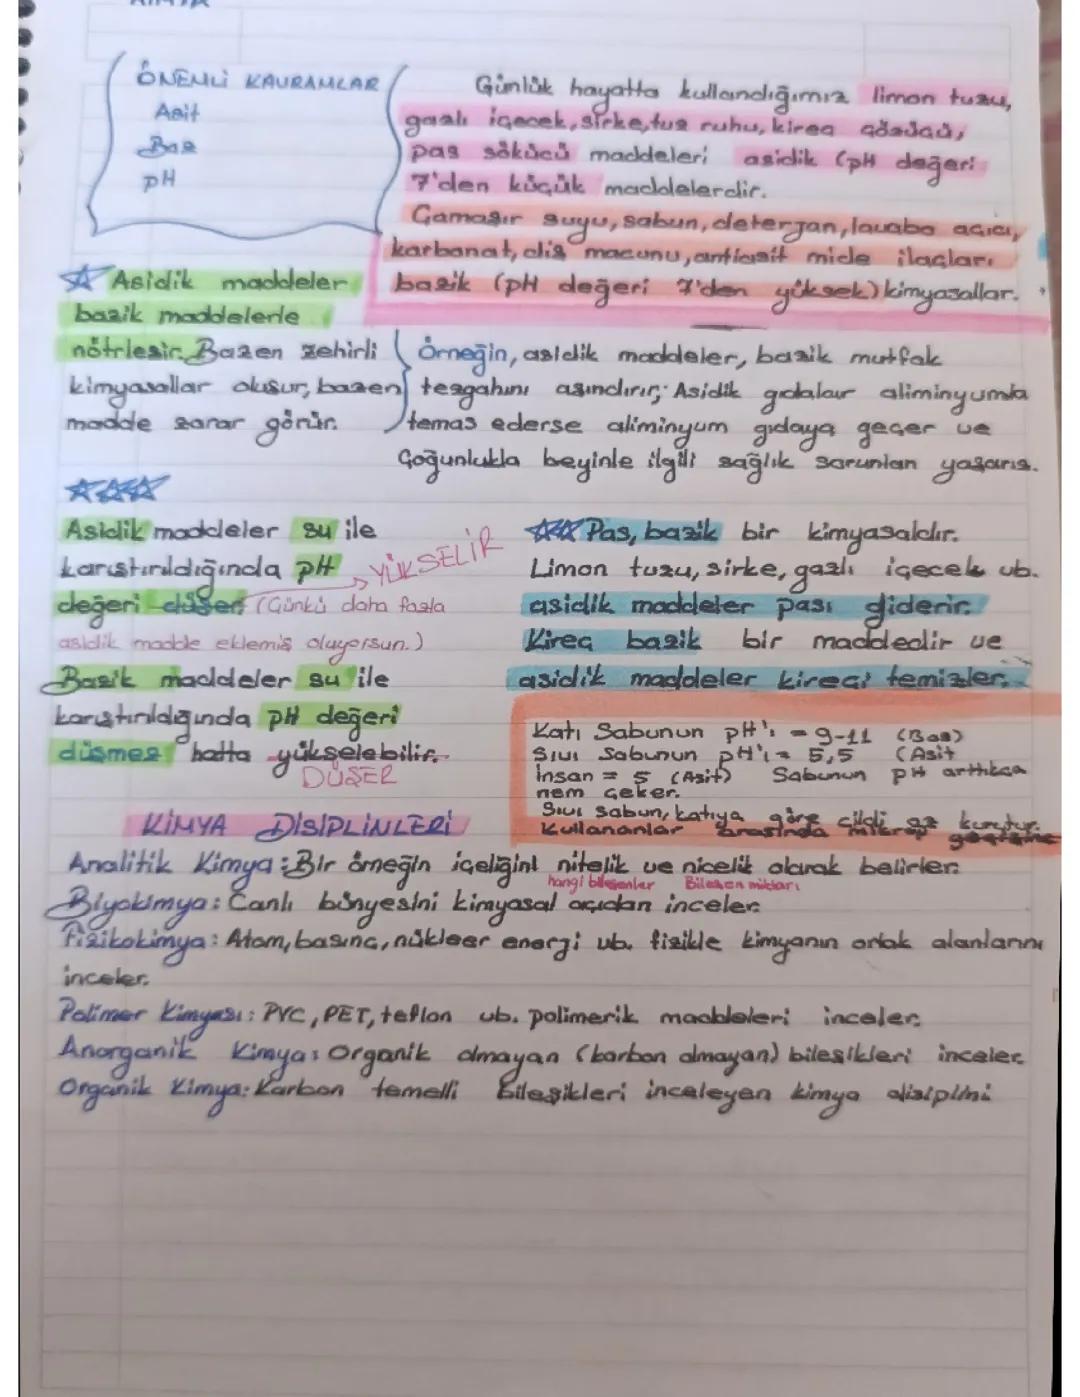 ÖNEMLİ KAVRAMLAR
Asit
Baz
pH
Günlük hayatta kullandığımız limon tuzu,
gazlı içecek, sirke, tuz ruhu, kireç çözücü,
pas sökücü maddeleri asidik (pH değeri
7'den küçük maddelerdir.
Çamaşır suyu, sabun, deterjan, lavabo açıcı,
karbonat, diş macunu, antiasit mide ilaçları
bazik (pH değeri 7'den yüksek) kimyasallar.
Asidik maddeler
bazik maddelerle
nötrleşir. Bazen zehirli
kimyasallar oluşur, bazen
madde zarar görür.
Örneğin, asidik maddeler, bazik mutfak
tezgahını aşındırır; Asidik gıdalar aliminyumla
temas ederse aliminyum gıdaya geçer ve
Çoğunlukla beyinle ilgili sağlık sorunları yaşarız.
Asidik maddeler su ile
karıştırıldığında pH YÜKSELİR
değeri düşer (Çünkü daha fazla
asidik madde eklemiş oluyorsun.)
Bazik maddeler su ile
karıştırıldığında pH değeri
düşmez hatta yükselebilir.
DÜŞER
Pas, bazik bir kimyasaldır.
Limon tuzu, sirke, gazlı içecek vb.
asidik maddeler pası giderir.
Kireç bazik bir maddedir ve
asidik maddeler kireci temizler.
Katı Sabunun pH'ı = 9-11 (Baz)
Sıvı Sabunun pH'ı = 5,5 (Asit
İnsan = 5 (Asit) Sabunun pH arttıkça
nem çeker.
Sıvı sabun, katıya göre cildi az kurutur.
Kullananlar arasında mikrop
KİMYA DİSİPLİNLERİ
Analitik Kimya: Bir örneğin içeliğini nitelik ve nicelik olarak belirler.
hangi bileşenler Bileşen miktarı
Biyokimya: Canlı bünyesini kimyasal açıdan inceler.
Fizikokimya: Atom, basınç, nükleer enerji vb. fizikle kimyanın ortak alanlarını
inceler.
Polimer Kimyası: PVC, PET, teflon vb. polimerik maddeleri inceler.
Anorganik Kimya: Organik olmayan (karbon olmayan) bileşikleri inceler.
Organik Kimya: Karbon temelli bileşikleri inceleyen kimya disiplini